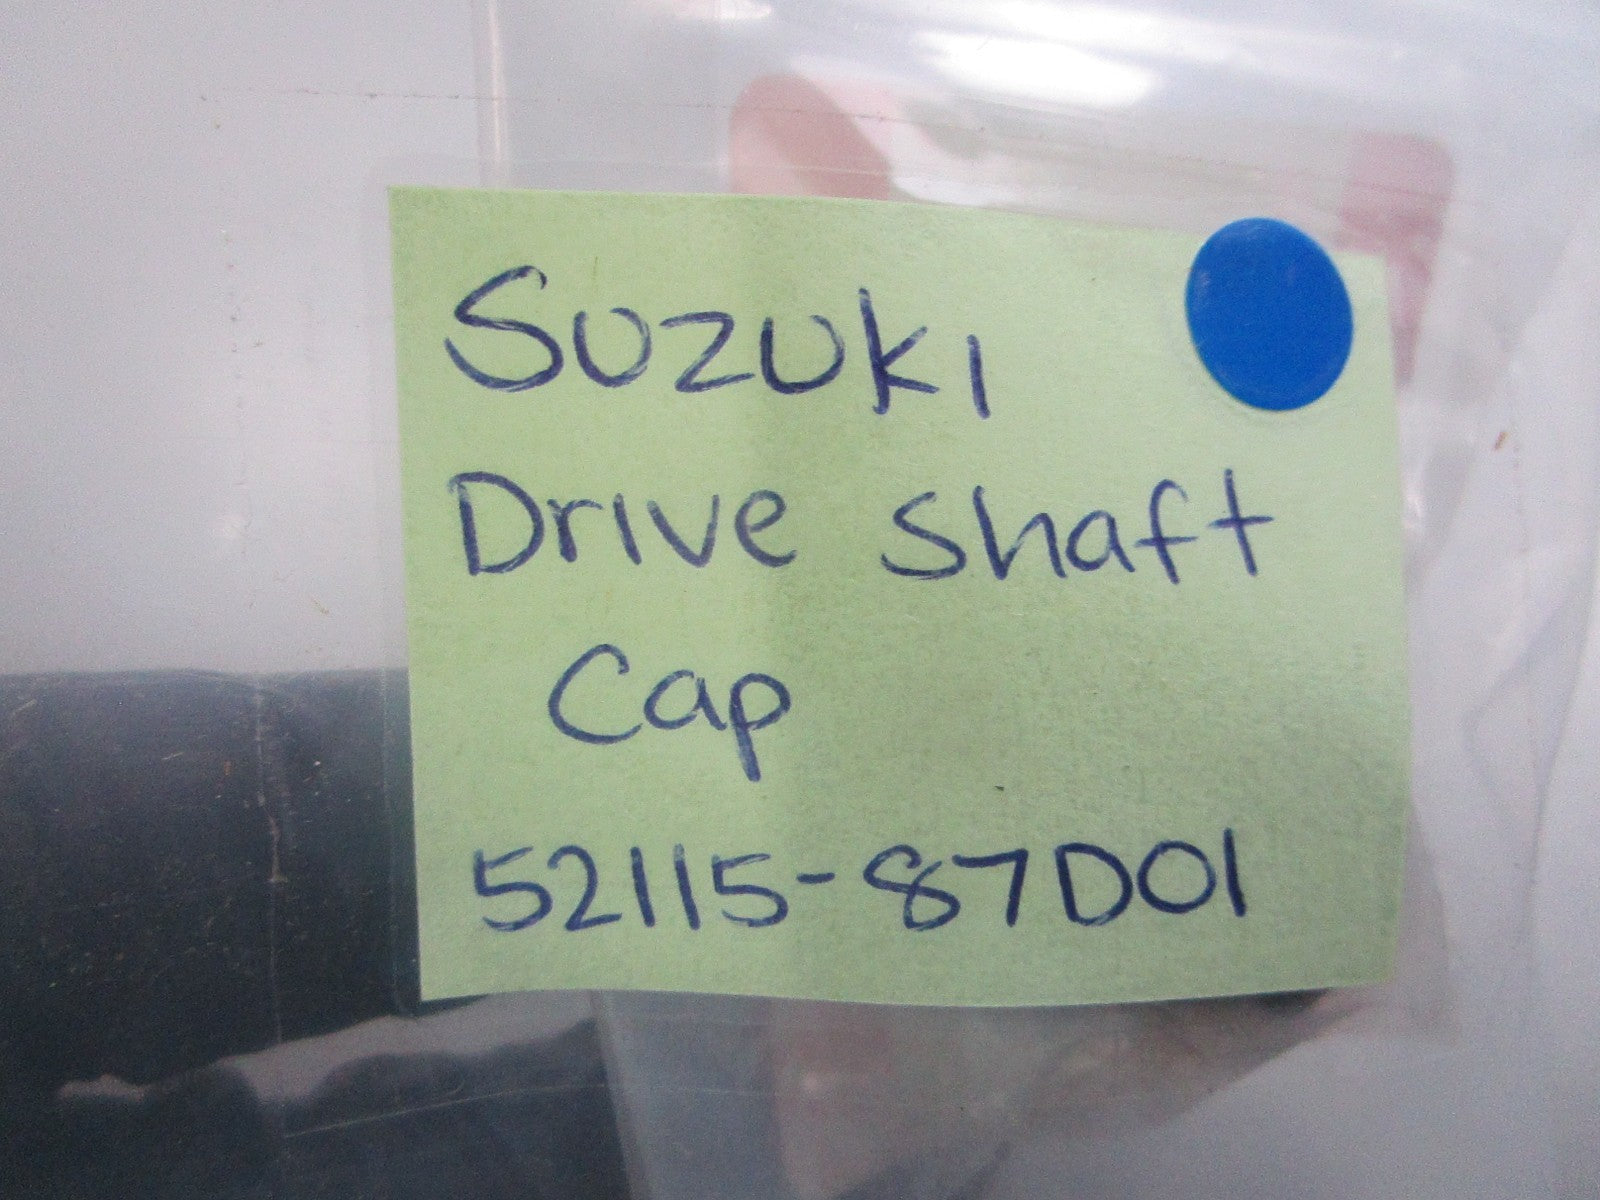 Suzuki
Drive Shaft
Cap
52115-87D01